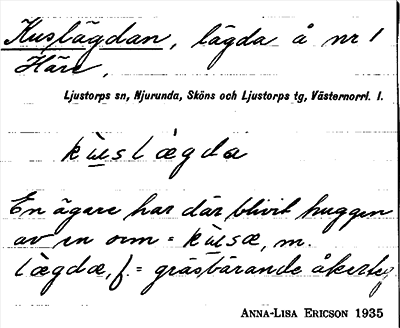 Kuslägdan, lägda å nr 1
Häre,
Ljustorps sn, Njurunda, Sköns och Ljustorps tg, Västernorrl. l.
kùslægda
En ägare har där blivit huggen
av en orm = kùsæ, m.
lægdæ, f. = gräsbärande åkerteg
ANNA-LISA ERICSON 1935